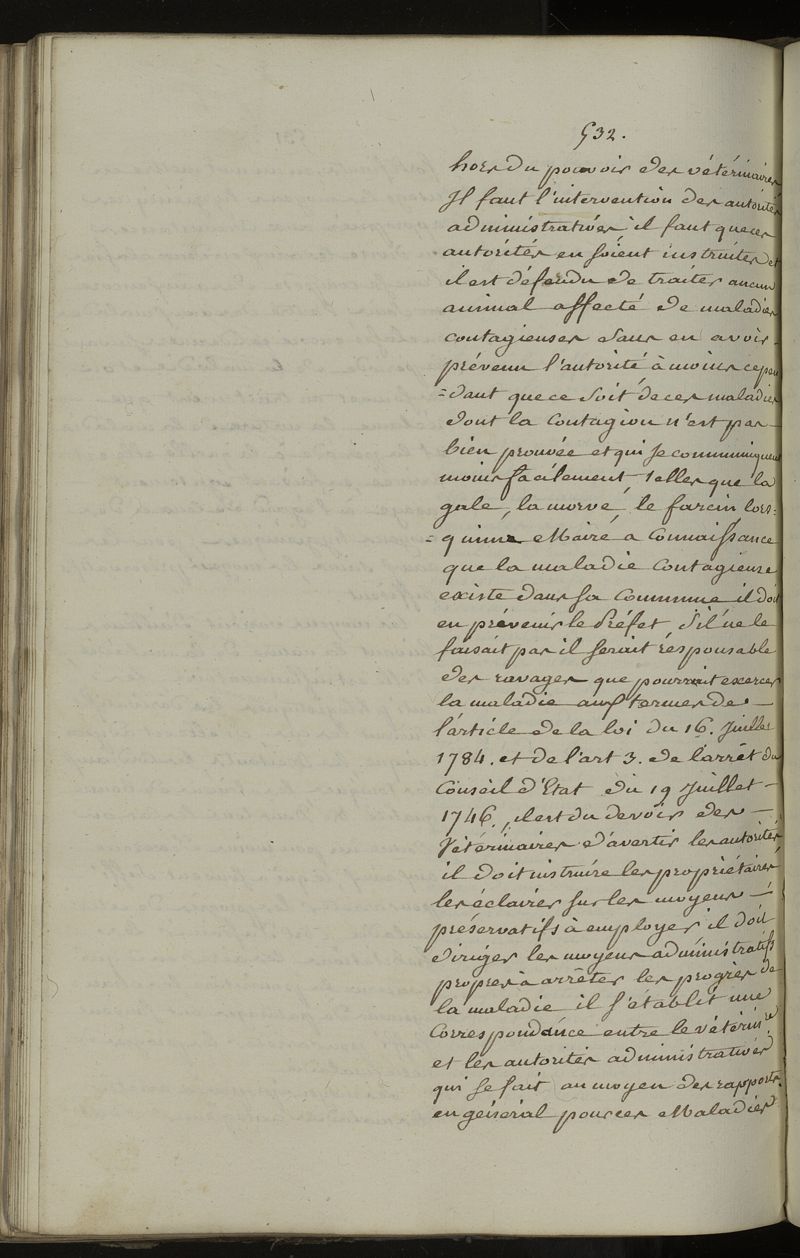 532.
hors du pouvoir des vétérinaires
Il faut l'intervention des autorités
administratives il faut que ces
autorités en soient instruites et
il est défendu de traiter aucun
animal affecté de maladies
contagieuses sans en avoir
prévenu l'autorité à moins cepen
=dant que ce soit de ces maladies
dont la contagion n'est pas
bien prouvée et qui se communiquent
moins facilement telles que la
gale, la morve, le farcin lors=
=qu'une Maire a connaissance
que la maladie contagieuse
existe dans sa commune il doit
en prévenir le Préfet, s'il ne le
faisait pas il serait responsable
des ravages que pourrait exercer
la maladie aux termes de
l'article de la loi du 16. Juillet
1784. et de l'art 3. de l'arrêt du
Conseil d'Etat du 19 Juillet
1746, il est du devoir des
Vétérinaires d'avertir les autorités
il doit instruire les propriétaires
les éclairer sur les moyens
préservatifs à employer, il doit
diriger les moyens administratifs
propres à arrêter les progrès de
la maladie il s'établit une
correspondance entre le vétérin.re
et les autorités administratives
qui se fait au moyen des rapports.
en général pour ces Maladies